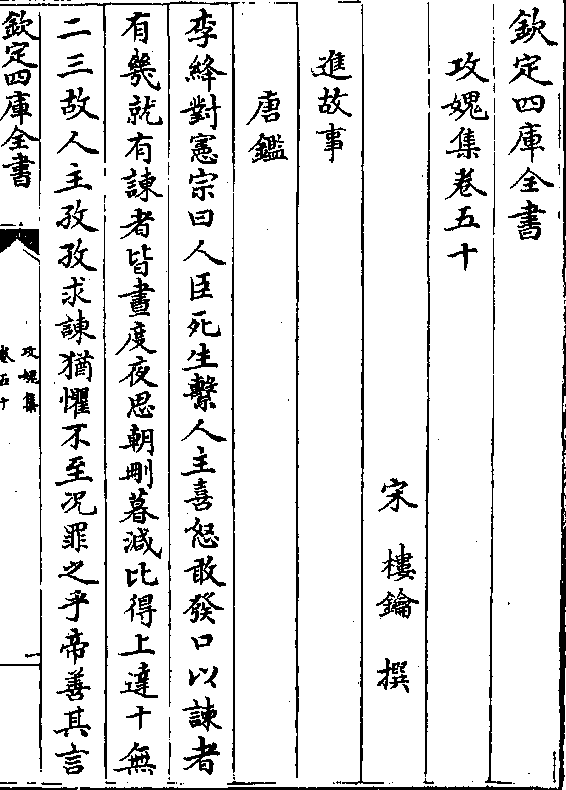 欽定四庫全書
攻媿集卷五十
宋 樓鑰 撰
進故事
唐鑑
李絳對憲宗曰人臣死生繫人主喜怒敢發口以諫者
有幾就有諫者皆晝度夜思朝刪暮減比得上達十無
二三故人主孜孜求諫猶懼不至况罪之乎帝善其言
欽定四庫全書
攻媿集
卷五十
一